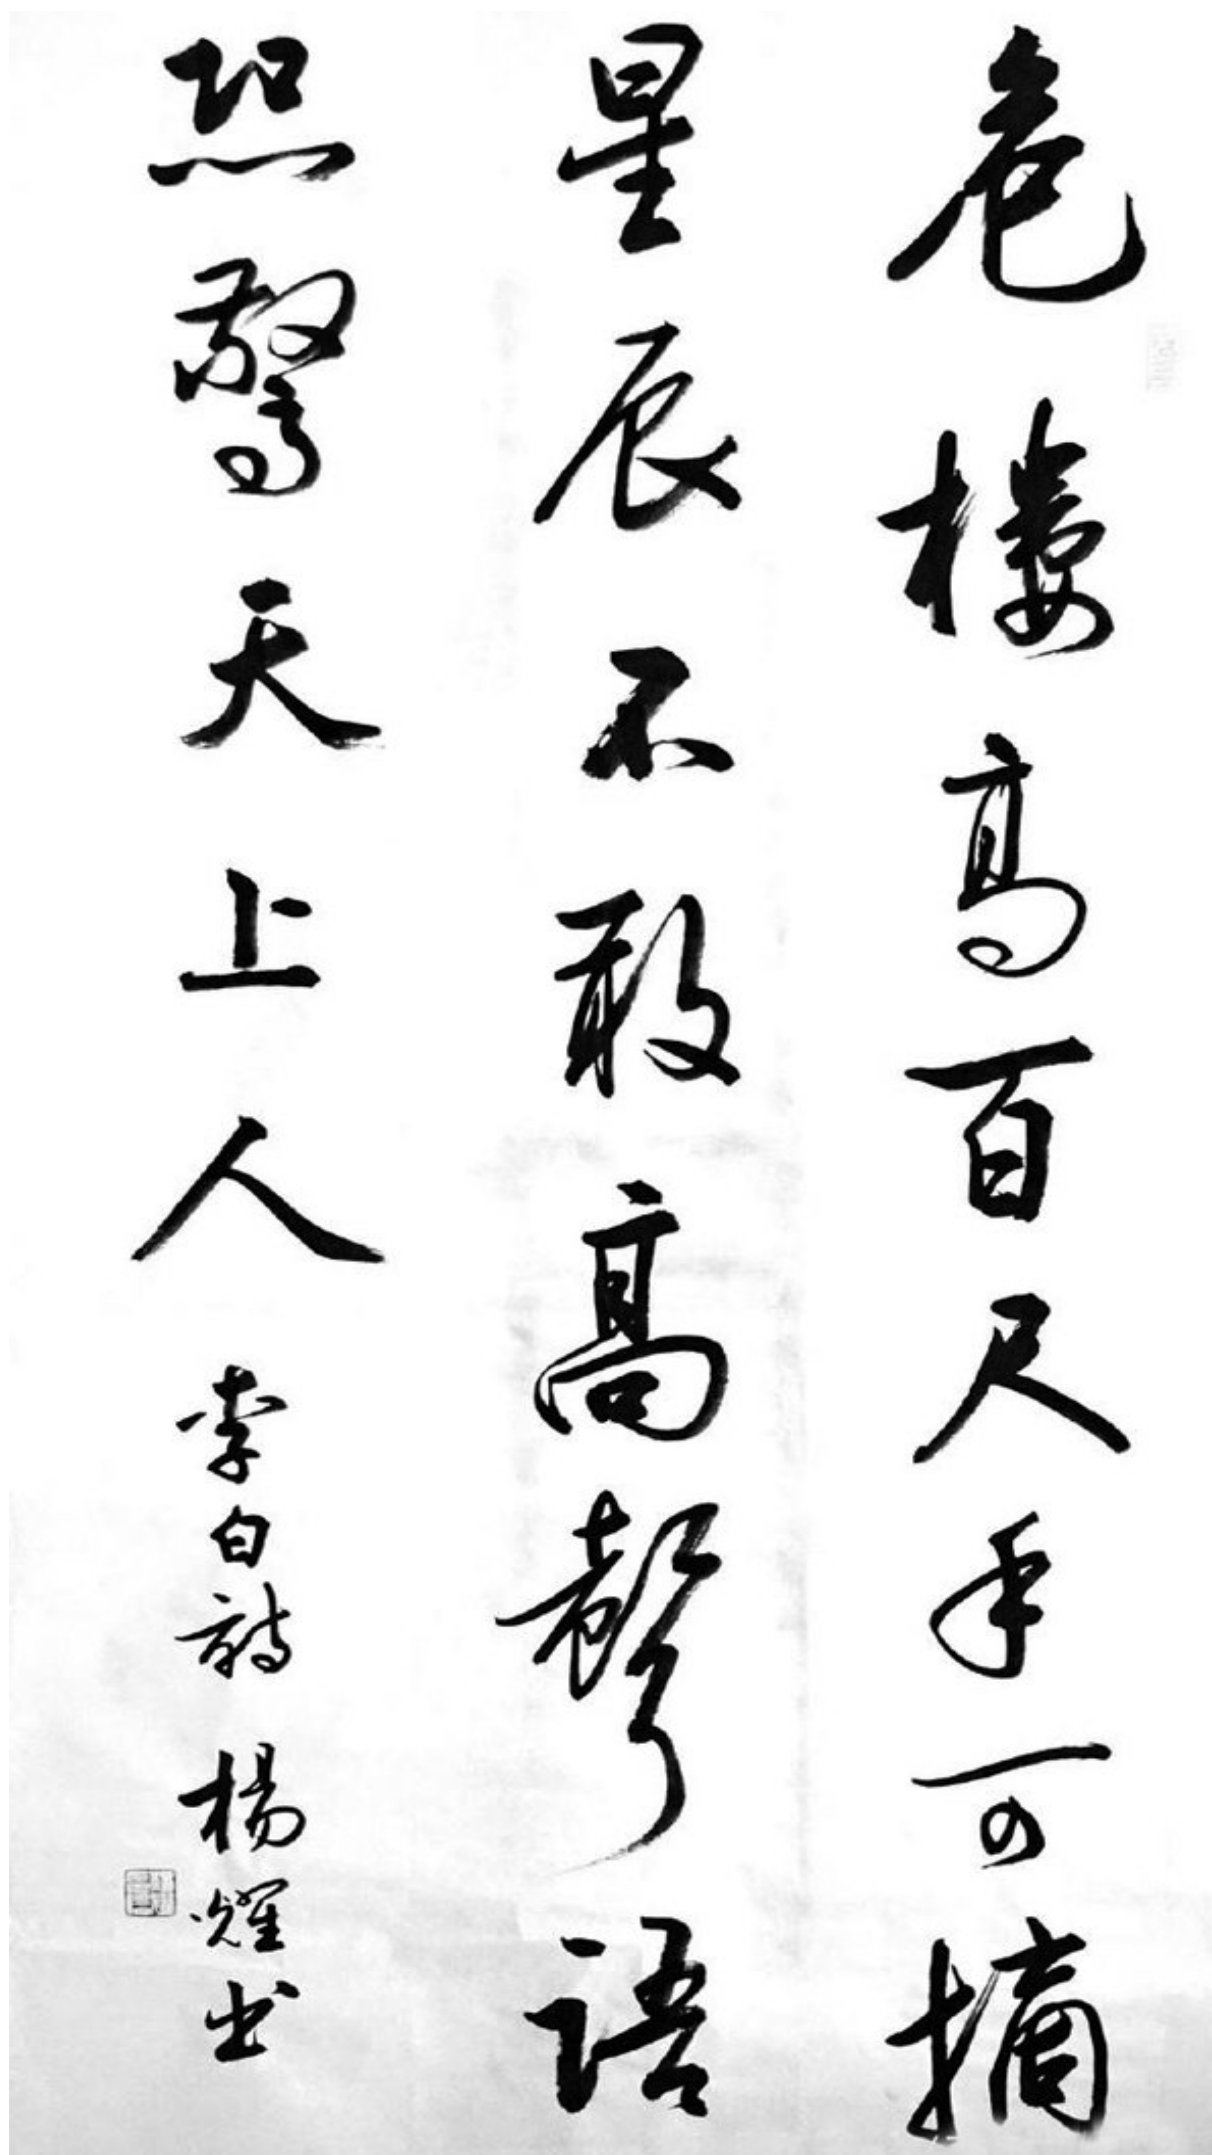 危樓高百尺手可摘
星辰不敢高聲語
恐驚天上人 李白詩 楊耀书